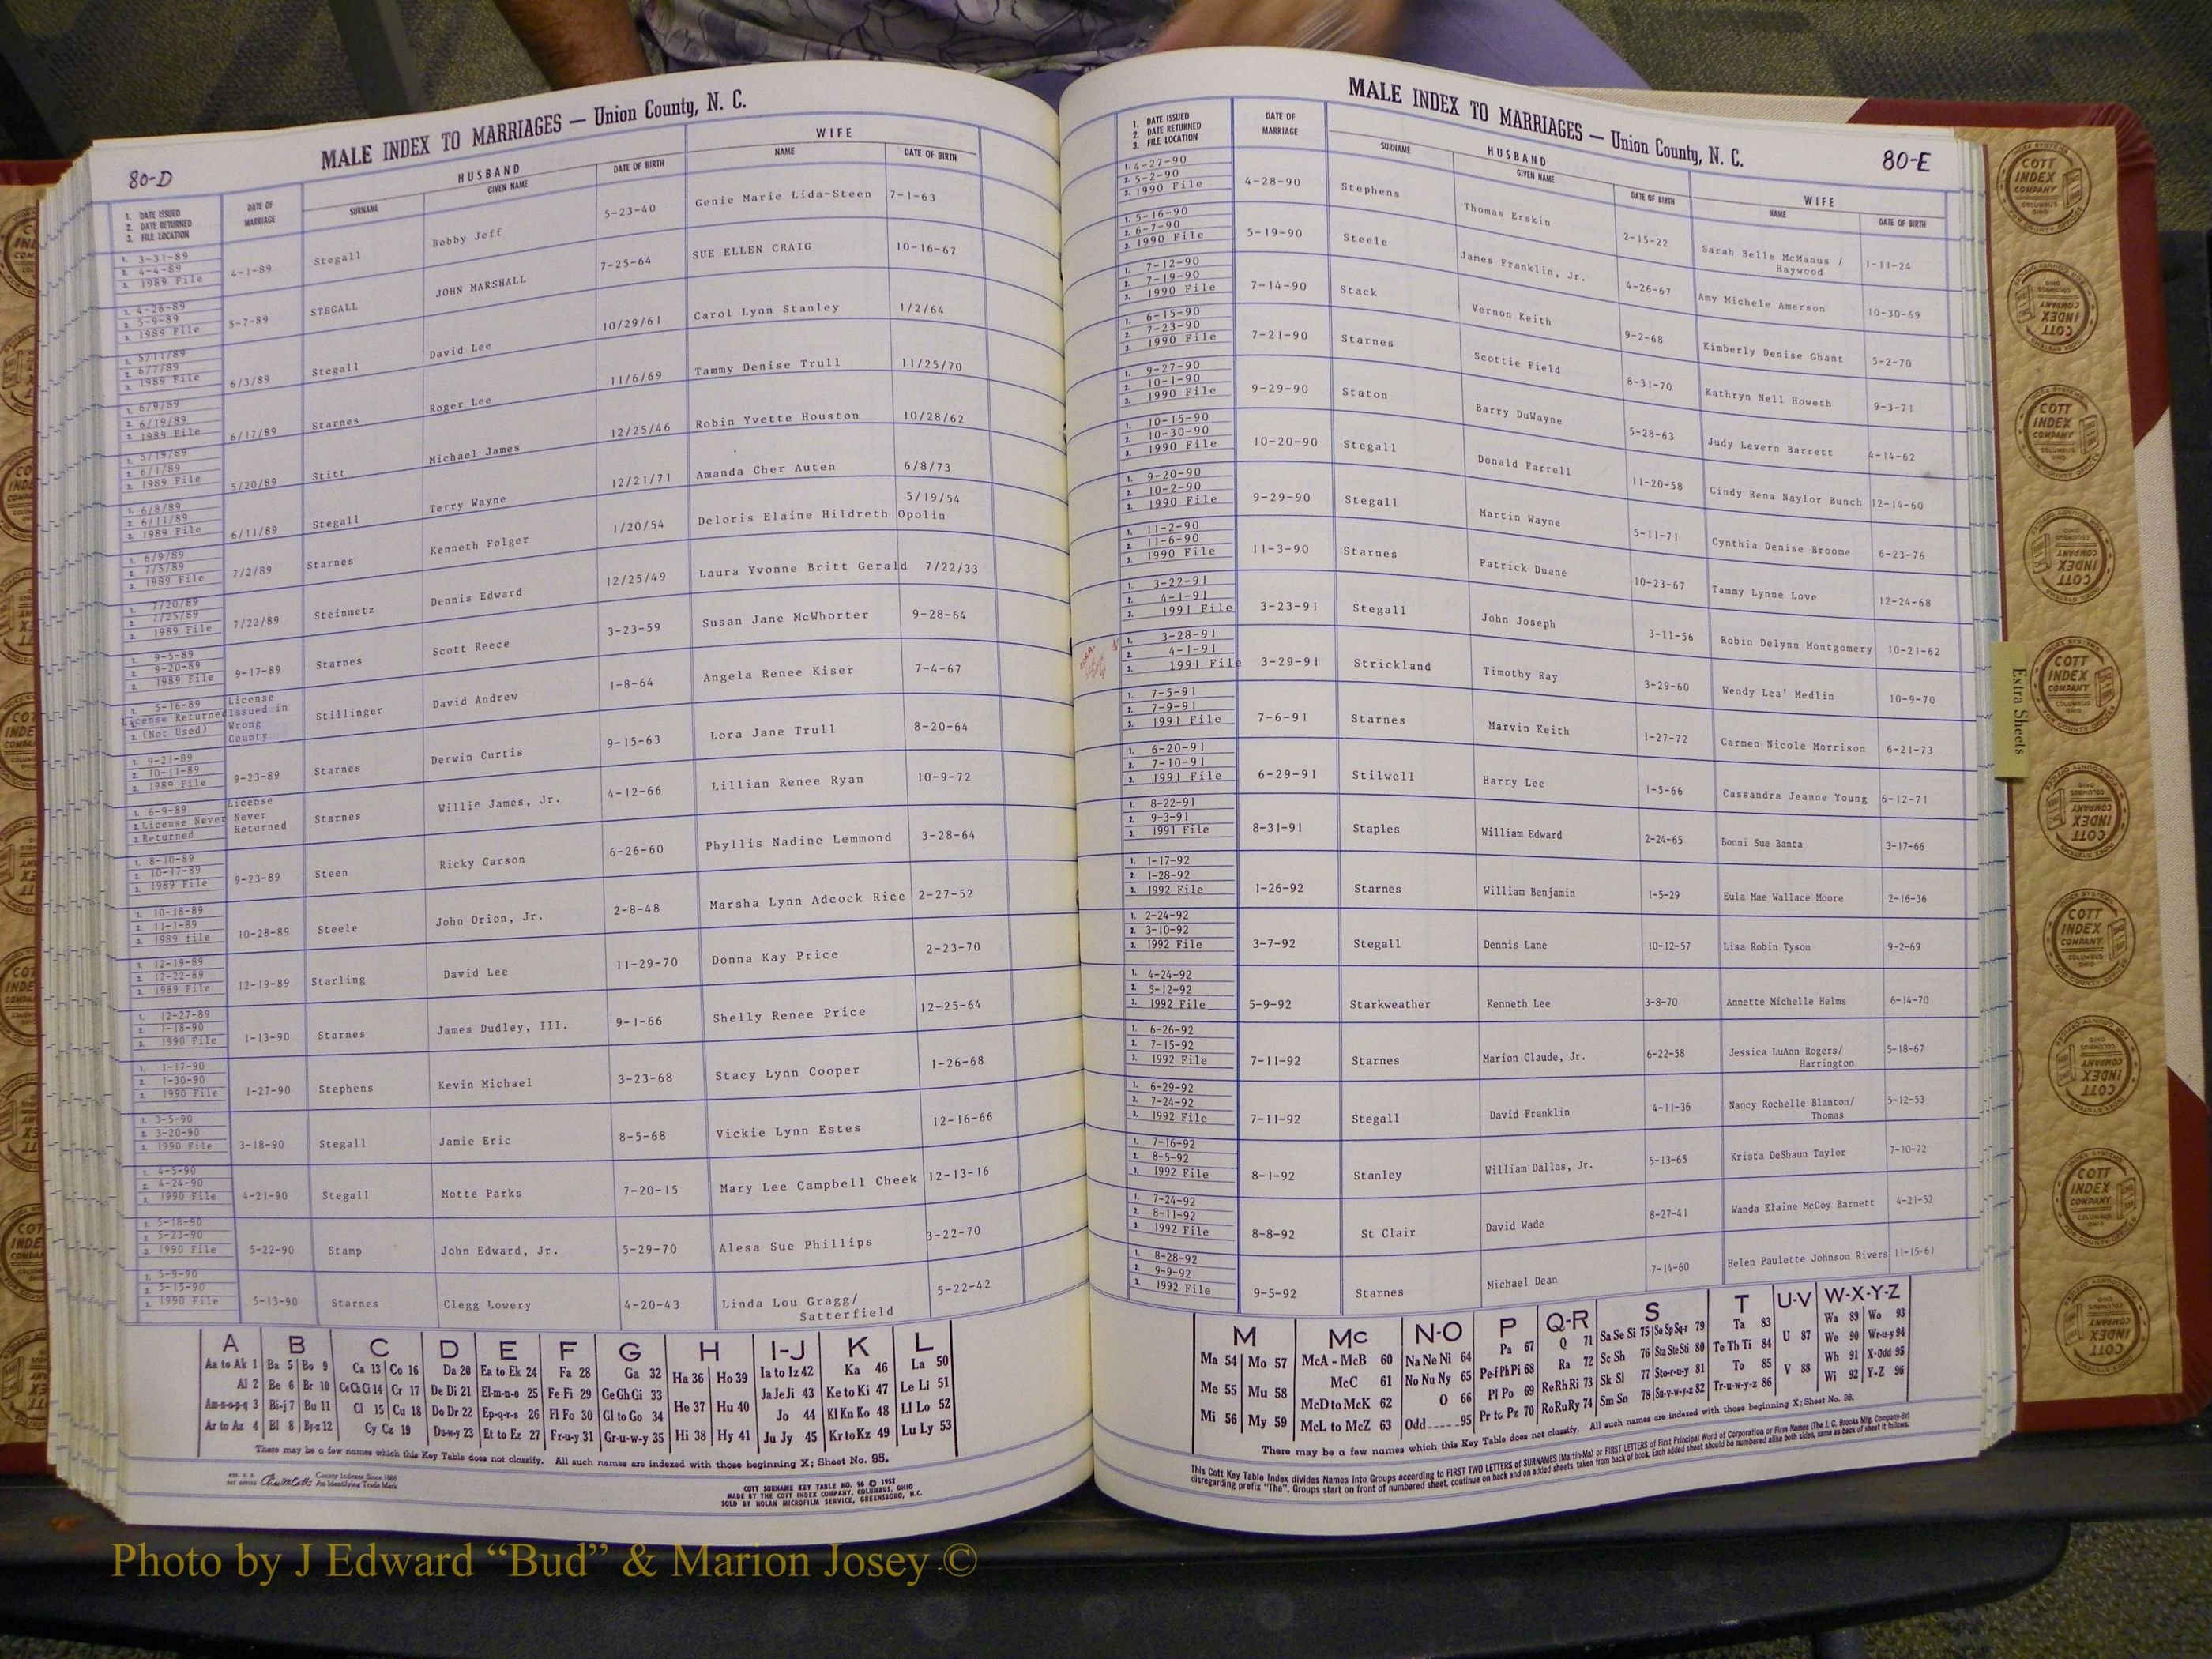 80-D
MALE INDEX TO MARRIAGES — Union County, N. C.
1. DATE ISSUED 2. DATE RETURNED 3. FILE LOCATION
DATE OF MARRIAGE
HUSBAND
SURNAME GIVEN NAME DATE OF BIRTH
WIFE
NAME DATE OF BIRTH
1. 3-31-89 2. 4-4-89 3. 1989 File 4-1-89 Stegall Bobby Jeff 5-23-40 Genie Marie Lida-Steen 7-1-63
1. 4-26-89 2. 5-9-89 3. 1989 File 5-7-89 STEGALL JOHN MARSHALL 7-25-64 SUE ELLEN CRAIG 10-16-67
1. 5/11/89 2. 6/7/89 3. 1989 File 6/3/89 Stegall David Lee 10/29/61 Carol Lynn Stanley 1/2/64
1. 6/9/89 2. 6/19/89 3. 1989 File 6/17/89 Starnes Roger Lee 11/6/69 Tammy Denise Trull 11/25/70
1. 5/19/89 2. 6/1/89 3. 1989 File 5/20/89 Stitt Michael James 12/25/46 Robin Yvette Houston 10/28/62
1. 6/8/89 2. 6/11/89 3. 1989 File 6/11/89 Stegall Terry Wayne 12/21/71 Amanda Cher Auten 6/8/73
1. 6/9/89 2. 7/3/89 3. 1989 File 7/2/89 Starnes Kenneth Folger 1/20/54 Deloris Elaine Hildreth Opolin 5/19/54
1. 7/20/89 2. 7/25/89 3. 1989 File 7/22/89 Steinmetz Dennis Edward 12/25/49 Laura Yvonne Britt Gerald 7/22/33
1. 9-5-89 2. 9-20-89 3. 1989 File 9-17-89 Starnes Scott Reece 3-23-59 Susan Jane McWhorter 9-28-64
1. 5-16-89 License Returned 3. (Not Used) License Issued in Wrong County Stillinger David Andrew 1-8-64 Angela Renee Kiser 7-4-67
1. 9-21-89 2. 10-11-89 3. 1989 File 9-23-89 Starnes Derwin Curtis 9-15-63 Lora Jane Trull 8-20-64
1. 6-9-89 2. License Never 3. Returned License Never Returned Starnes Willie James, Jr. 4-12-66 Lillian Renee Ryan 10-9-72
1. 8-10-89 2. 10-17-89 3. 1989 File 9-23-89 Steen Ricky Carson 6-26-60 Phyllis Nadine Lemmond 3-28-64
1. 10-18-89 2. 11-1-89 3. 1989 file 10-28-89 Steele John Orion, Jr. 2-8-48 Marsha Lynn Adcock Rice 2-27-52
1. 12-19-89 2. 12-22-89 3. 1989 File 12-19-89 Starling David Lee 11-29-70 Donna Kay Price 2-23-70
1. 12-27-89 2. 1-18-90 3. 1990 File 1-13-90 Starnes James Dudley, III. 9-1-66 Shelly Renee Price 12-25-64
1. 1-17-90 2. 1-30-90 3. 1990 File 1-27-90 Stephens Kevin Michael 3-23-68 Stacy Lynn Cooper 1-26-68
1. 3-5-90 2. 3-20-90 3. 1990 File 3-18-90 Stegall Jamie Eric 8-5-68 Vickie Lynn Estes 12-16-66
1. 4-5-90 2. 4-24-90 3. 1990 File 4-21-90 Stegall Motte Parks 7-20-15 Mary Lee Campbell Cheek 12-13-16
1. 5-18-90 2. 5-23-90 3. 1990 File 5-22-90 Stamp John Edward, Jr. 5-29-70 Alesa Sue Phillips 3-22-70
1. 5-9-90 2. 5-15-90 3. 1990 File 5-13-90 Starnes Clegg Lowery 4-20-43 Linda Lou Gragg/ Satterfield 5-22-42
A B C D E F G H I-J K L
Aa to Ak 1 Ba 5 Bo 9 Ca 13 Co 16 Da 20 Ea to Ek 24 Fa 28 Ga 32 Ha 36 Ho 39 Ia to Iz 42 Ka 46 La 50
Al 2 Be 6 Br 10 Ce Ch Ci 14 Cr 17 De Di 21 El-m-n-o 25 Fe Fi 29 Ge Gh Gi 33 He 37 Hu 40 Ja Je Ji 43 Ke to Ki 47 Le Li 51
Am-n-o-p-q 3 Bi-j 7 Bu 11 Cl 15 Cu 18 Do Dr 22 Ep-q-r-s 26 Fl Fo 30 Gl to Go 34 Jo 44 Kl Kn Ko 48 Ll Lo 52
Ar to Az 4 Bl 8 By-z 12 Cy Cz 19 Du-w-y 23 Et to Ez 27 Fr-u-y 31 Gr-u-w-y 35 Hi 38 Hy 41 Ju Jy 45 Kr to Kz 49 Lu Ly 53
There may be a few names which this Key Table does not classify. All such names are indexed with those beginning X; Sheet No. 95.
County Indexes Since 1888
An Identifying Trade Mark
COTT SURNAME KEY TABLE NO. 96 © 1952
MADE BY THE COTT INDEX COMPANY, COLUMBUS, OHIO
SOLD BY NOLAN MICROFILM SERVICE, GREENSBORO, N.C.
MALE INDEX TO MARRIAGES — Union County, N. C.
80-E
1. DATE ISSUED 2. DATE RETURNED 3. FILE LOCATION
DATE OF MARRIAGE
HUSBAND
SURNAME GIVEN NAME DATE OF BIRTH
WIFE
NAME DATE OF BIRTH
1. 4-27-90 2. 5-2-90 3. 1990 File 4-28-90 Stephens Thomas Erskin 2-15-22 Sarah Belle McManus / Haywood 1-11-24
1. 5-16-90 2. 6-7-90 3. 1990 File 5-19-90 Steele James Franklin, Jr. 4-26-67 Amy Michele Amerson 10-30-69
1. 7-12-90 2. 7-19-90 3. 1990 File 7-14-90 Stack Vernon Keith 9-2-68 Kimberly Denise Ghant 5-2-70
1. 6-15-90 2. 7-23-90 3. 1990 File 7-21-90 Starnes Scottie Field 8-31-70 Kathryn Nell Howeth 9-3-71
1. 9-27-90 2. 10-1-90 3. 1990 File 9-29-90 Staton Barry DuWayne 5-28-63 Judy Levern Barrett 4-14-62
1. 10-15-90 2. 10-30-90 3. 1990 File 10-20-90 Stegall Donald Farrell 11-20-58 Cindy Rena Naylor Bunch 12-14-60
1. 9-20-90 2. 10-2-90 3. 1990 File 9-29-90 Stegall Martin Wayne 5-11-71 Cynthia Denise Broome 6-23-76
1. 11-2-90 2. 11-6-90 3. 1990 File 11-3-90 Starnes Patrick Duane 10-23-67 Tammy Lynne Love 12-24-68
1. 3-22-91 2. 4-1-91 3. 1991 File 3-23-91 Stegall John Joseph 3-11-56 Robin Delynn Montgomery 10-21-62
1. 3-28-91 2. 4-1-91 3. 1991 File 3-29-91 Strickland Timothy Ray 3-29-60 Wendy Lea' Medlin 10-9-70
1. 7-5-91 2. 7-9-91 3. 1991 File 7-6-91 Starnes Marvin Keith 1-27-72 Carmen Nicole Morrison 6-21-73
1. 6-20-91 2. 7-10-91 3. 1991 File 6-29-91 Stilwell Harry Lee 1-5-66 Cassandra Jeanne Young 6-12-71
1. 8-22-91 2. 9-3-91 3. 1991 File 8-31-91 Staples William Edward 2-24-65 Bonni Sue Banta 3-17-66
1. 1-17-92 2. 1-28-92 3. 1992 File 1-26-92 Starnes William Benjamin 1-5-29 Eula Mae Wallace Moore 2-16-36
1. 2-24-92 2. 3-10-92 3. 1992 File 3-7-92 Stegall Dennis Lane 10-12-57 Lisa Robin Tyson 9-2-69
1. 4-24-92 2. 5-12-92 3. 1992 File 5-9-92 Starkweather Kenneth Lee 3-8-70 Annette Michelle Helms 6-14-70
1. 6-26-92 2. 7-15-92 3. 1992 File 7-11-92 Starnes Marion Claude, Jr. 6-22-58 Jessica LuAnn Rogers/ Harrington 5-18-67
1. 6-29-92 2. 7-24-92 3. 1992 File 7-11-92 Stegall David Franklin 4-11-36 Nancy Rochelle Blanton/ Thomas 5-12-53
1. 7-16-92 2. 8-5-92 3. 1992 File 8-1-92 Stanley William Dallas, Jr. 5-13-65 Krista DeShaun Taylor 7-10-72
1. 7-24-92 2. 8-11-92 3. 1992 File 8-8-92 St Clair David Wade 8-27-41 Wanda Elaine McCoy Barnett 4-21-52
1. 8-28-92 2. 9-9-92 3. 1992 File 9-5-92 Starnes Michael Dean 7-14-60 Helen Paulette Johnson Rivers 11-15-61
M Mc N-O P Q-R S T U-V W-X-Y-Z
Ma 54 Mo 57 McA - McB 60 Na Ne Ni 64 Pa 67 Q 71 Sa Se Si 75 So Sp Sq-r 79 Ta 83 U 87 Wa 89 Wo 93
Me 55 Mu 58 McC 61 No Nu Ny 65 Pe-f Ph Pi 68 Ra 72 Sc Sh 76 Sta Ste Sti 80 Te Th Ti 84 We 90 Wr-u-y 94
McD to McK 62 O 66 Pl Po 69 Re Rh Ri 73 Sk Sl 77 Sto-r-u-y 81 To 85 V 88 Wh 91 X-Odd 95
Mi 56 My 59 McL to McZ 63 Odd 95 Pr to Pz 70 Ro Ru Ry 74 Sm Sn 78 Su-v-w-y-z 82 Tr-u-w-y-z 86 Wi 92 Y-Z 96
There may be a few names which this Key Table does not classify. All such names are indexed with those beginning X; Sheet No. 95.
This Cott Key Table Index divides Names into Groups according to FIRST TWO LETTERS of SURNAMES (Martin-Ma) or FIRST LETTERS of First Principal Word of Corporation or Firm Names (The J. C. Brooks Mfg. Company-Br)
disregarding prefix "The". Groups start on front of numbered sheet, continue on back and on added sheets taken from back of book. Each added sheet should be numbered alike both sides, same as back of sheet it follows.
Extra Sheets
COTT INDEX COMPANY COLUMBUS OHIO
Photo by J Edward “Bud” & Marion Josey ©